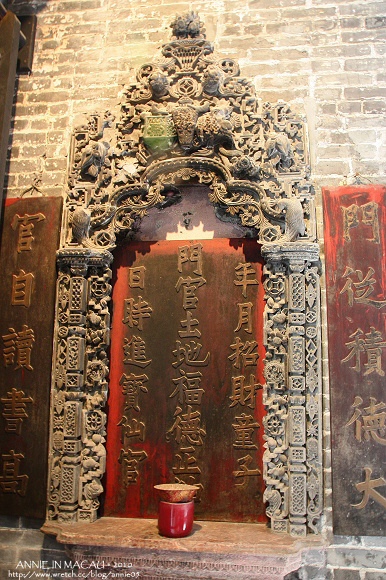 門從積德大
年月招財童子
門官土地福德正神
日時進寶仙官
官自讀書高
ANNIE IN MACAU · 2010
http://www.wretch.cc/blog/annie05